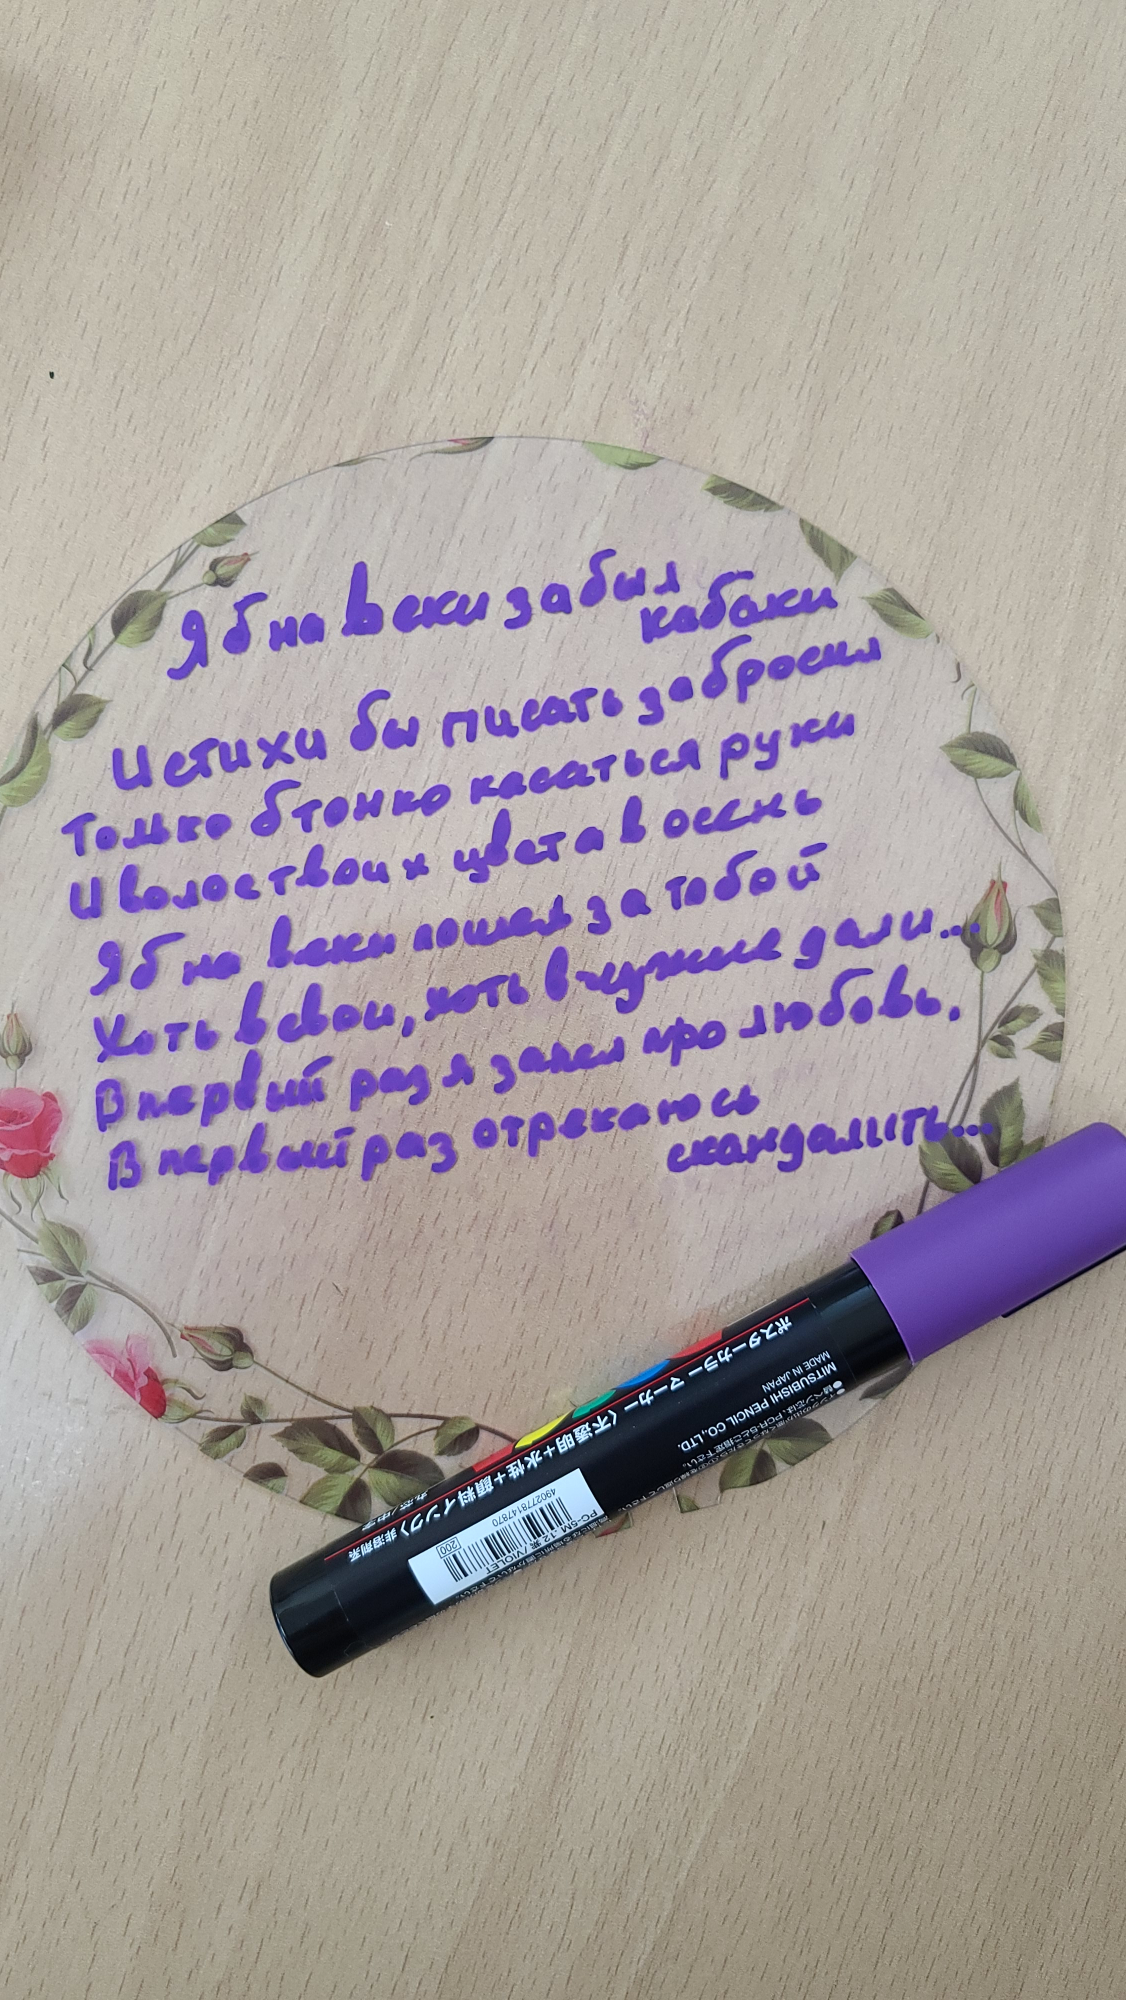 Я б на веки забыл
кабаки
И стихи бы писать забросил
Только б тонко касаться руки
И волос твоих цвета в осень
Я б на веки пошел за тобой
Хоть в свои, хоть в чужие дали...
В первый раз я запел про любовь.
В первый раз отрекаюсь
скандалить...
ポスターカラーマーカー〈不透明+水性+顔料インク〉非溶剤系
MITSUBISHI PENCIL CO.,LTD.
MADE IN JAPAN
4902778147870
200